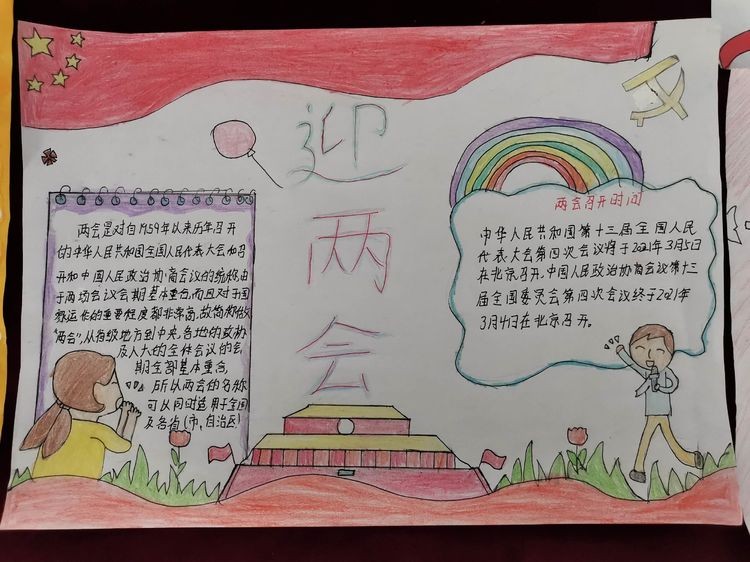 迎
两
会
两会是对自1959年以来历年召开
的中华人民共和国全国人民代表大会和召
开和中国人民政治协商会议的统称,由
于两场会议会期基本重合,而且对于国
家运作的重要程度都非常高,故简称做
“两会”,从各级地方到中央,各地的政协
及人大的全体会议的会
期全部基本重合,
所以两会的名称
可以同时适用于全国
及各省(市、自治区)
两会召开时间
中华人民共和国第十三届全国人民
代表大会第四次会议将于2021年3月5日
在北京召开,中国人民政治协商会议第十三
届全国委员会第四次会议终于2021年
3月4日在北京召开。